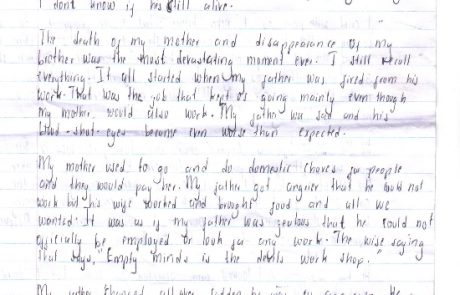 I dont know if hes still alive.
The death of my mother and disappearance of my
brother was the most devastating moment ever. I still recall
everything. It all started when my father was fired from his
work. That was the job that kept us going mainly even though
my mother would also work. My father was sad and his
blood-shot eyes became even worse than expected.
My mother used to go and do domestic chores for people
and they would pay her. My father got angrier that he could not
work but his wife worked and brought food and all we
wanted. It was as if my father was jealous that he could not
officially be employed or look for any work. The wise saying
that says, "Empty minds is the devils work shop."
My father changed all